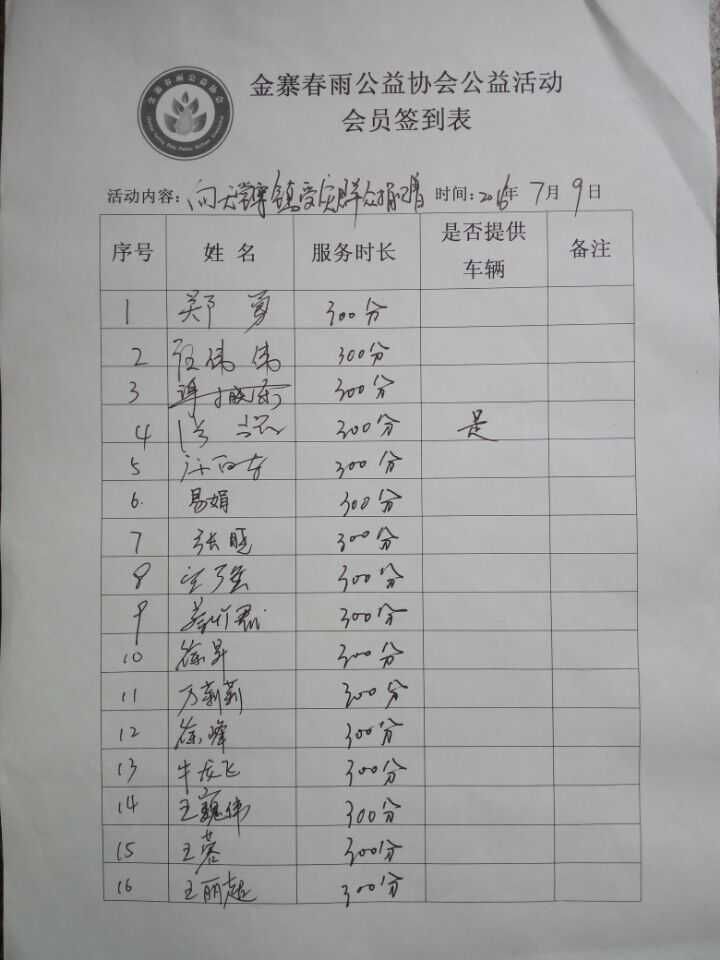 金寨春雨公益协会
金寨春雨公益协会公益活动
会员签到表
活动内容：向天堂寨镇受灾群众捐赠 时间：2016年 7月 9日
序号 姓名 服务时长 是否提供车辆 备注
1 郑勇 300分
2 汪伟伟 300分
3 300分
4 300分 是
5 300分
6. 易娟 300分
7 张晓 300分
8 300分
9 300分
10 徐昇 300分
11 万莉莉 300分
12 徐峰 300分
13 牛龙飞 300分
14 王巍伟 300分
15 王蓉 300分
16 王丽超 300分